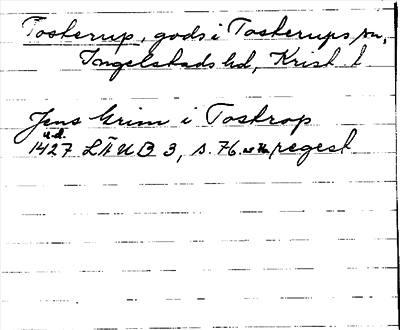 Tosterup, gods i Tosterups sn,
Ingelstads hd, Krist. l
Jens Grim i Tostrop
u.d.
1427 LÄUB 3, s. 76. regest